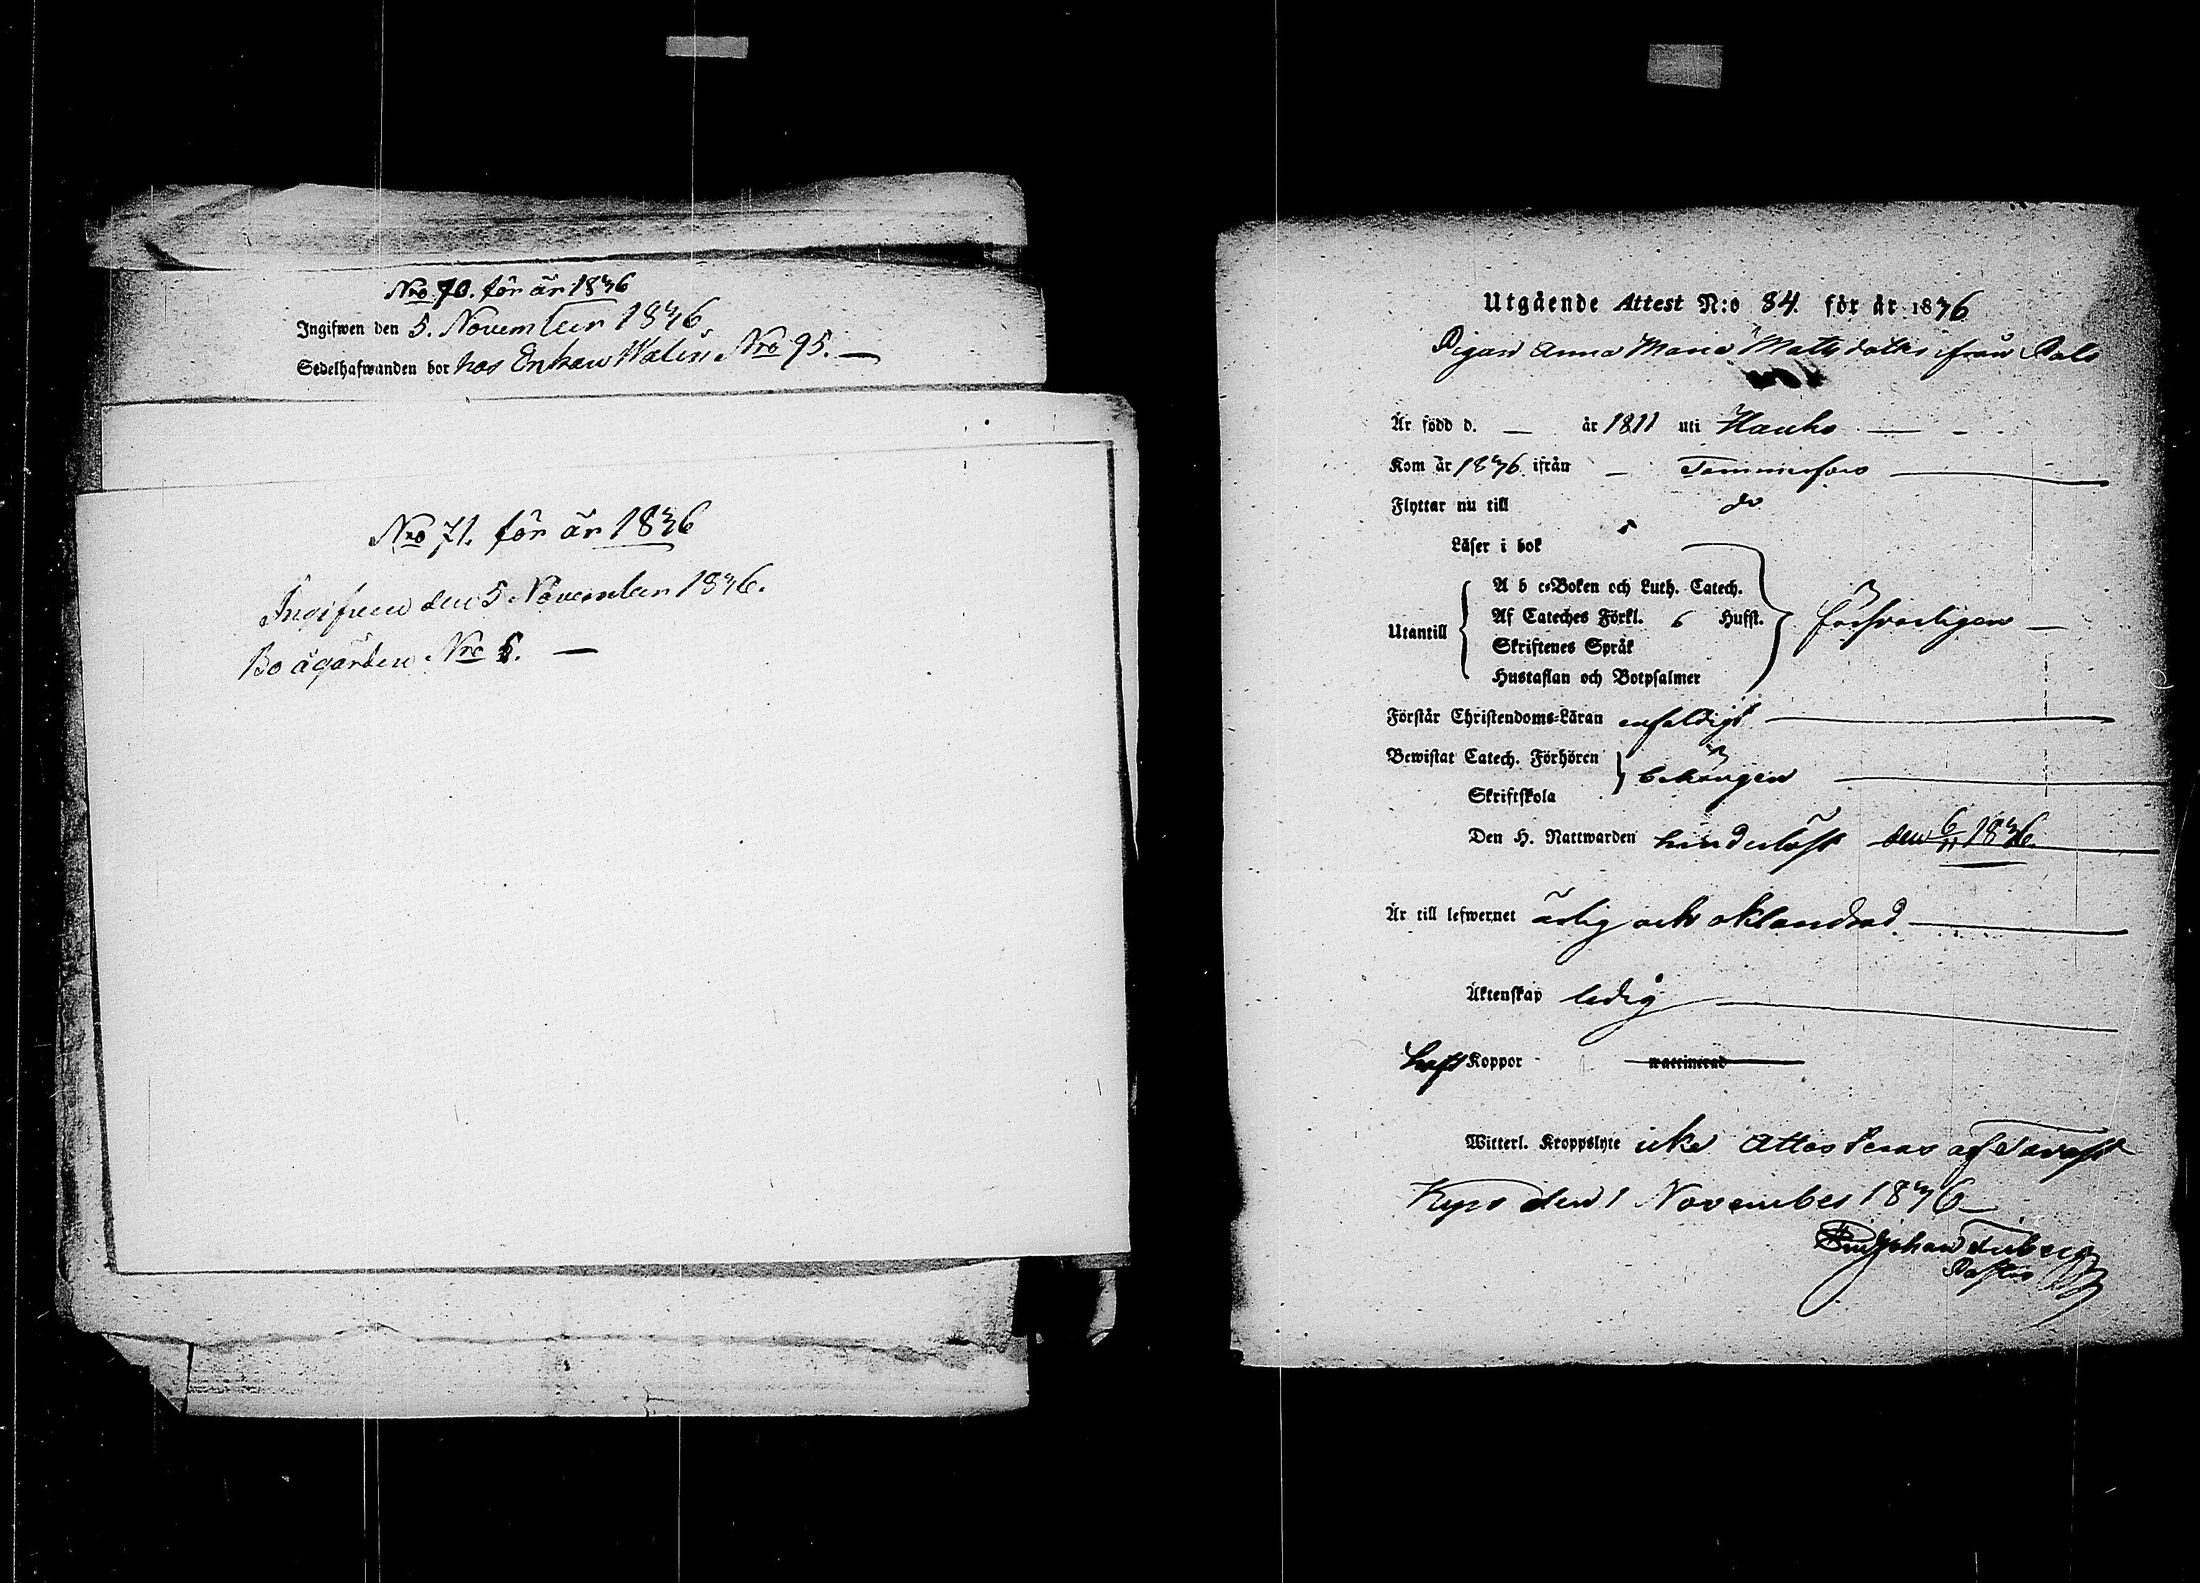 Nro 70. för år 1836
Ingifwen den 5. November 1836.
Sedelhafwanden bor hos Enkan Walin Nro 95. —
Nro 71. för år 1836
Ingifven den 5 November 1836.
Bo ågården Nro 6. —
Utgående Attest N:o 84. för år 1836
Pigan Anna Maria Mattsdotter ifrån Palo
Är född d. — år 1811 uti Hauho —
Kom år 1836 ifrån — Tammerfors
Flyttar nu till do
Läser i bok
Utantill
A b c-Boken och Luth. Catech.
Af Cateches Förkl. 6 Hufst.
Skriftenes Språk
Hustaflan och Botpsalmer
försvarligen —
Förstår Christendoms-Läran enfaldigt
Bewistat Catech. Förhören
Skriftskola
behörigen
Den H. Nattwarden hinderlöst den 6/11 1836.
Är till lefwernet ärlig och oklandrad.
Äktenskap ledig
haft Koppor wattinerad
Witterl. Kroppslyte icke Attesteras af Tavast
Kyro den 1 November 1836
Johan
Pastor